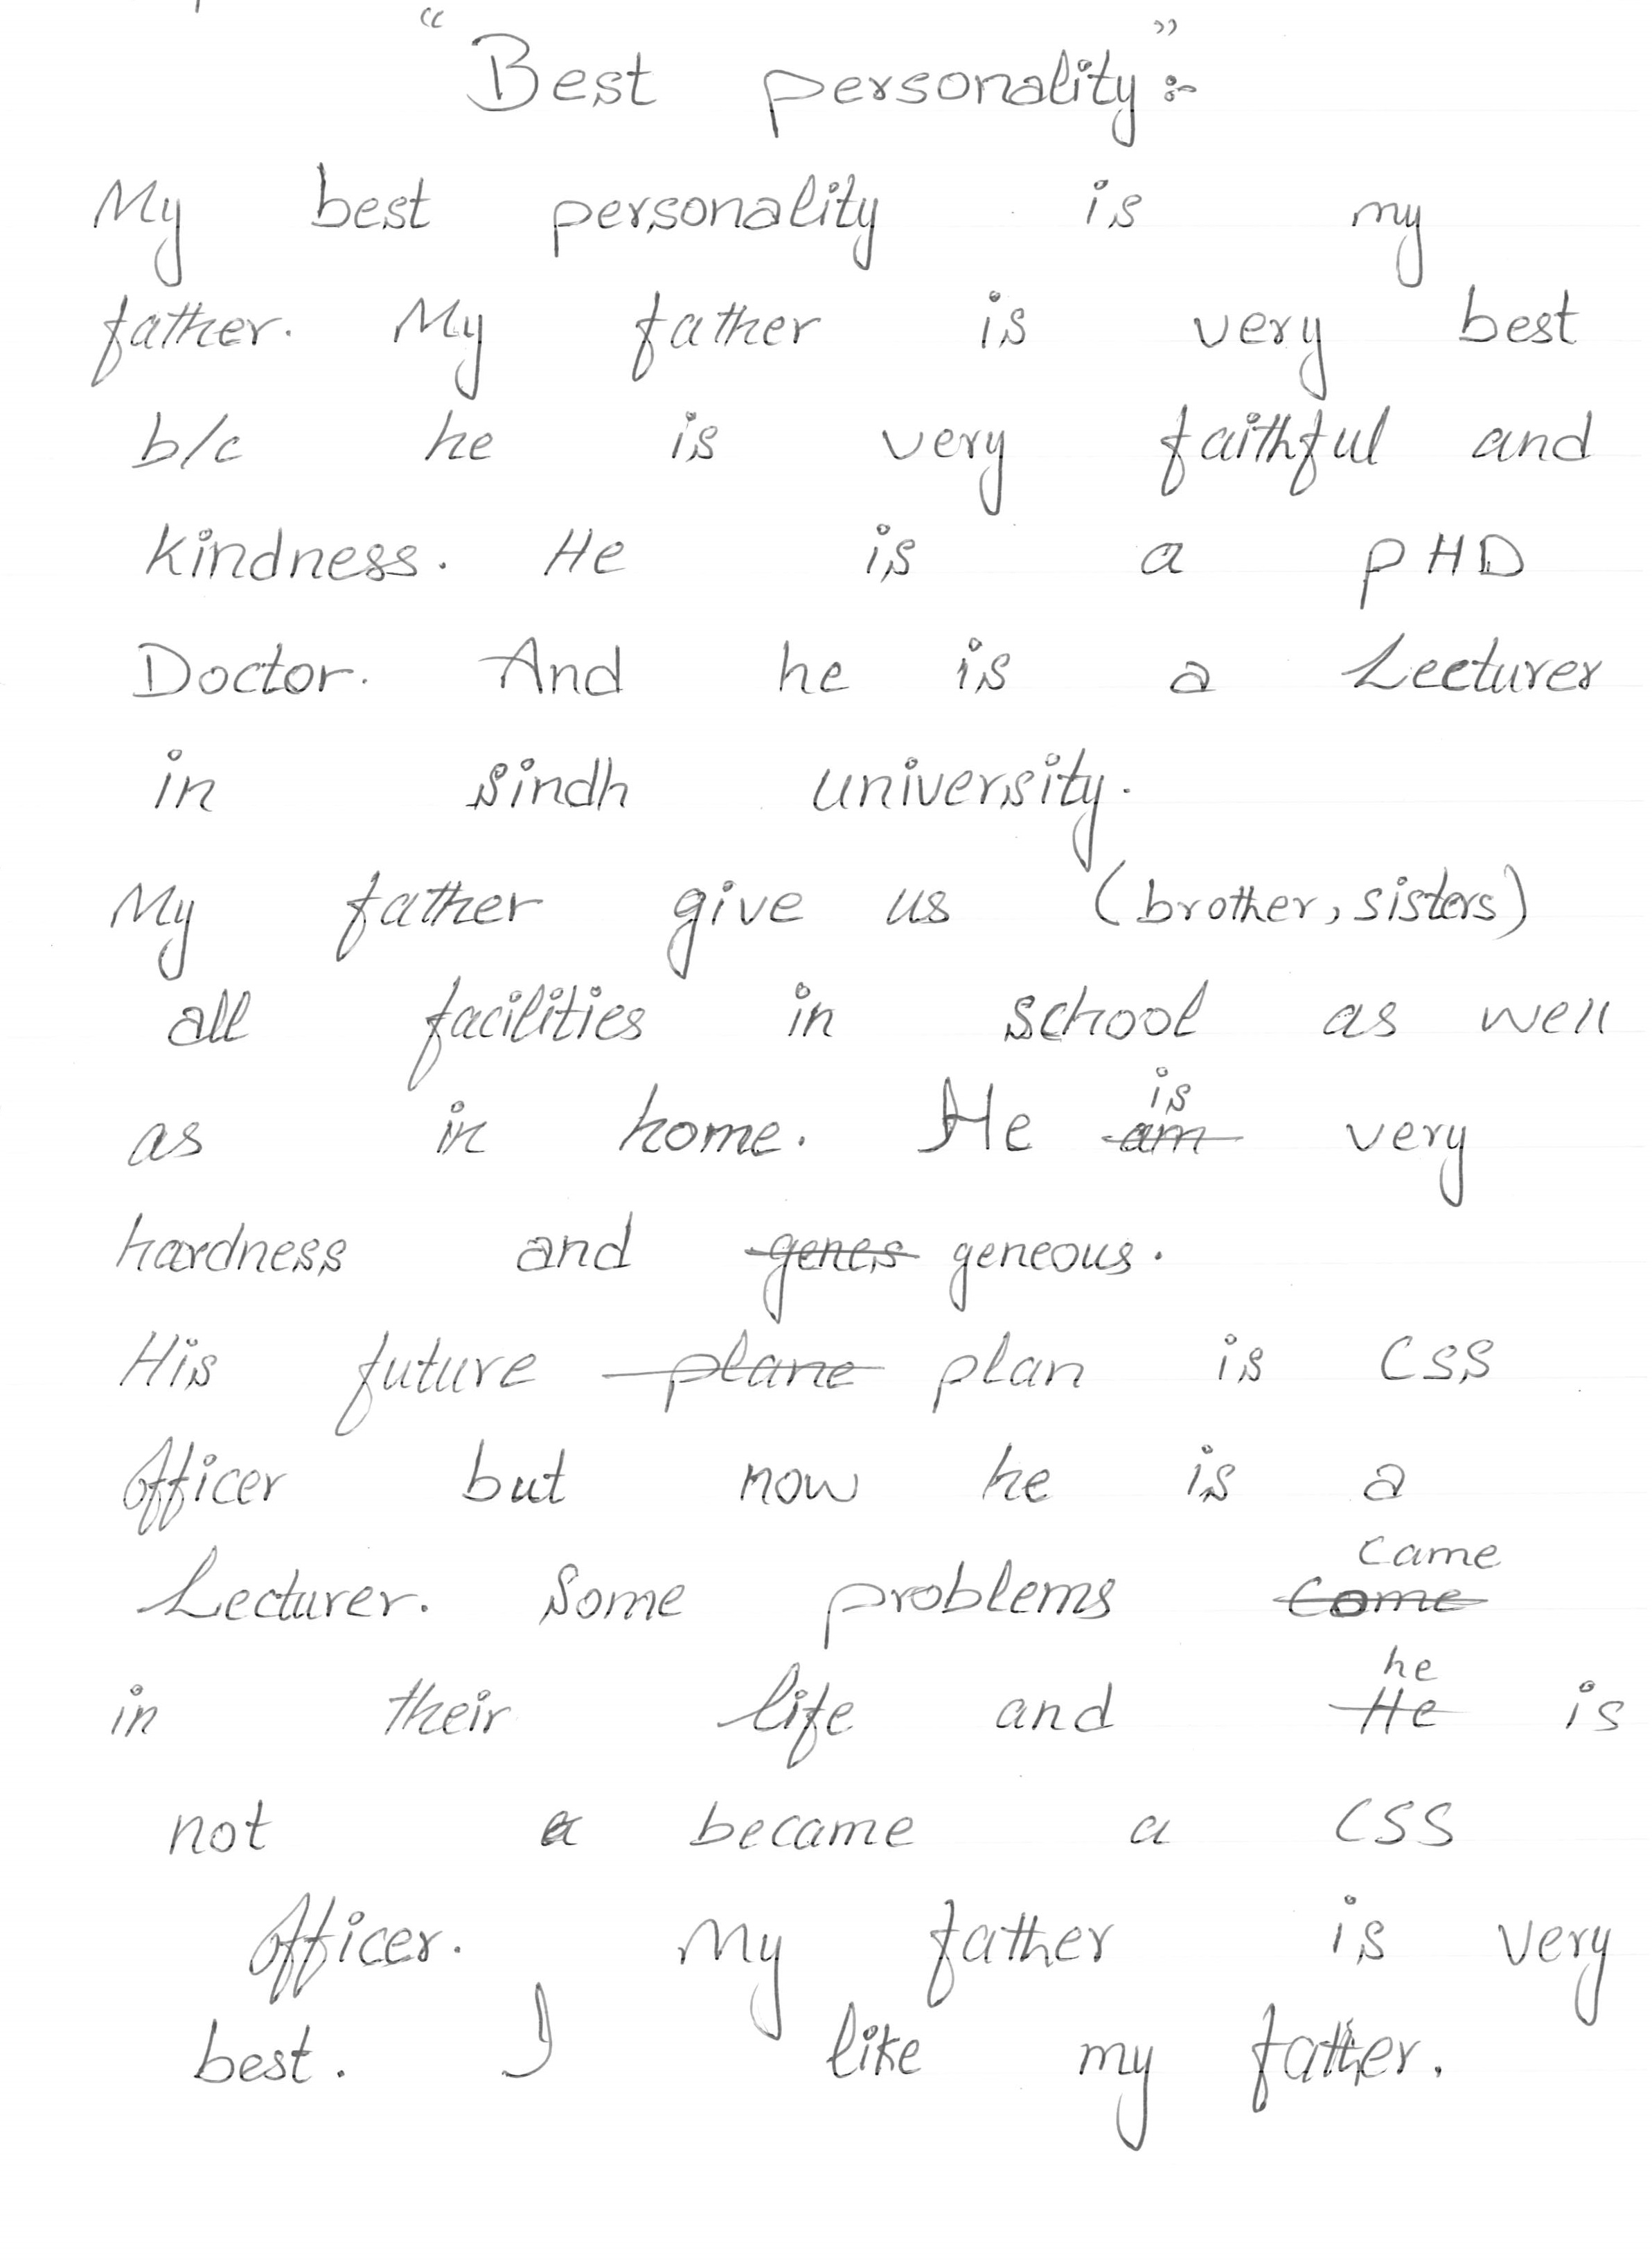 "Best personality":-
My best personality is my
father. My father is very best
b/c he is very faithful and
kindness. He is a PHD
Doctor. And he is a Lecturer
in Sindh university.
My father give us (brother, sisters)
all facilities in school as well
as in home. He am is very
hardness and genes geneous.
His future plane plan is CSS
Officer but now he is a
Lecturer. Some problems come came
in their life and He he is
not a became a CSS
Officer. My father is very
best. I like my father.